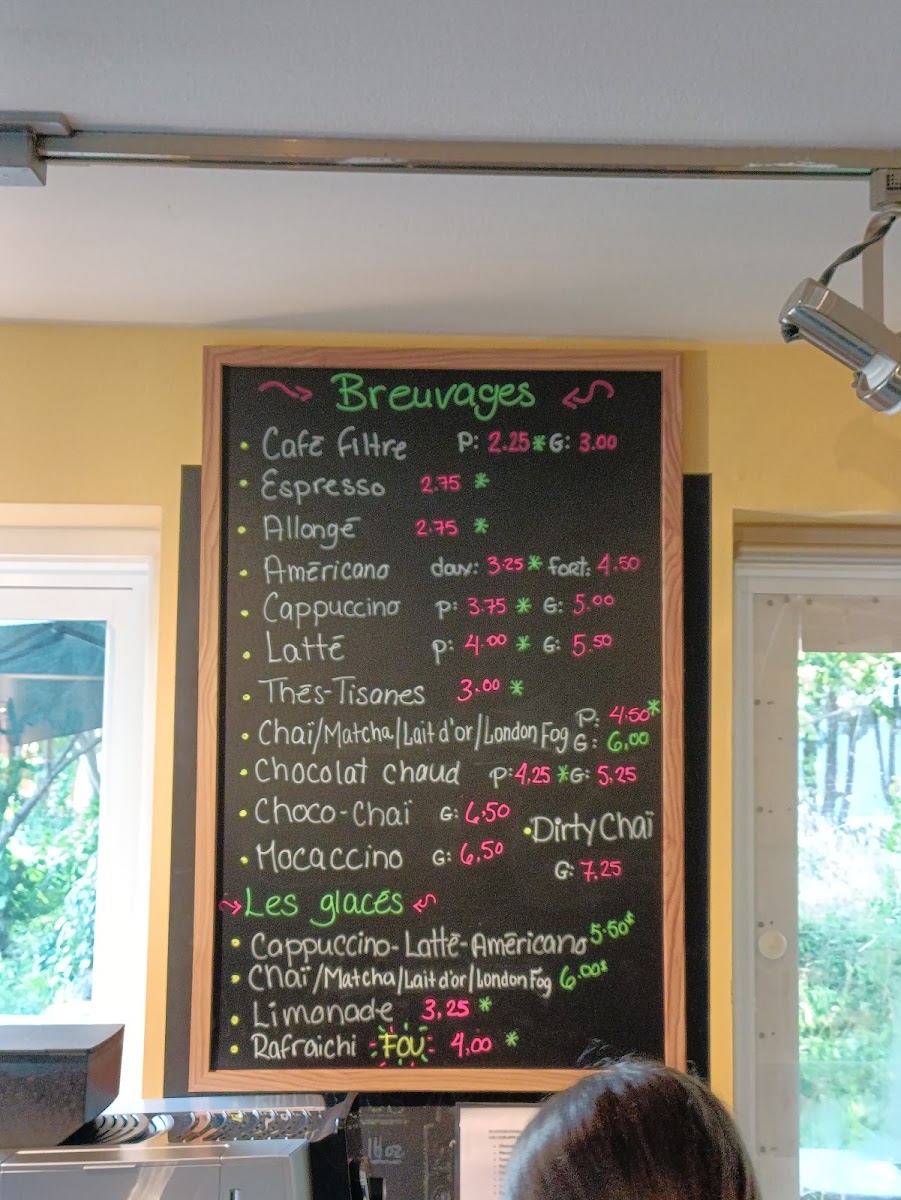 Breuvages
• Café filtre P: 2.25 * G: 3.00
• Espresso 2.75 *
• Allongé 2.75 *
• Américano doux: 3.25 * fort: 4.50
• Cappuccino P: 3.75 * G: 5.00
• Latté P: 4.00 * G: 5.50
• Thés-Tisanes 3.00 *
• Chaï/Matcha/Lait d'or/London Fog P: 4.50*
G: 6.00
• Chocolat chaud P: 4,25 * G: 5,25
• Choco-Chaï G: 6,50
• Dirty Chaï
• Mocaccino G: 6,50
G: 7,25
Les glacés
• Cappuccino-Latté-Américano 5.50*
• Chaï/Matcha/Lait d'or/London Fog 6.00*
• Limonade 3,25 *
• Rafraichi FOU 4,00 *